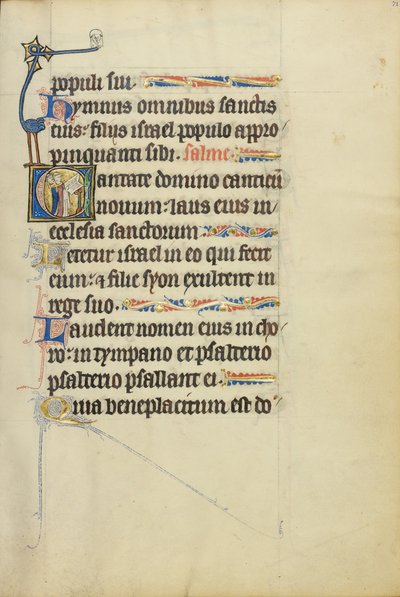 populi sui.
Hymnus omnibus sanctis
eius: filiis israel populo appro
pinquanti sibi. salme.
Cantate domino canticū
nouum: laus eius in
ecclesia sanctorum.
Letetur israel in eo qui fecit
eum: & filie syon exultent in
rege suo.
Laudent nomen eius in cho
ro: in tympano et psalterio
psalterio psallant ei.
Quia beneplacitum est do